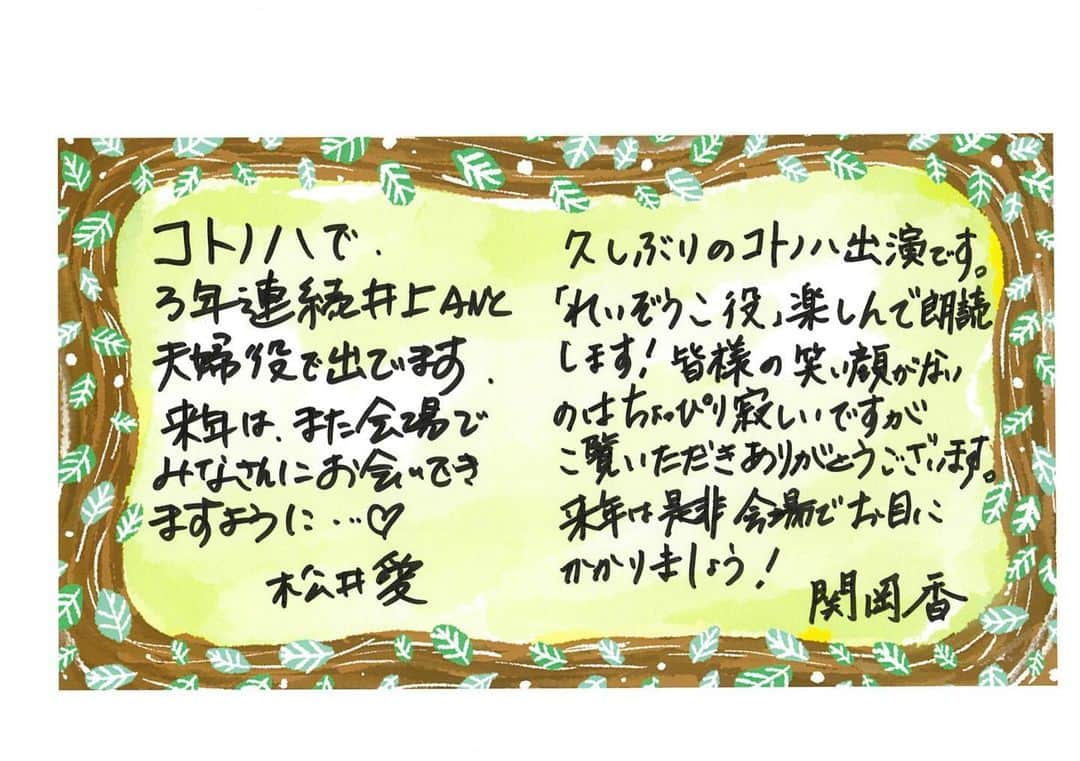 コトノハで、
3年連続井上ANと
夫婦役で出てます。
来年は、また会場で
みなさんにお会いでき
ますように…♡
松井愛
久しぶりのコトノハ出演です。
「れいぞうこ役」楽しんで朗読
します！皆様の笑い顔がない
のはちょっぴり寂しいですが
ご覧いただきありがとうございます。
来年は是非会場でお目に
かかりましょう！
関岡香